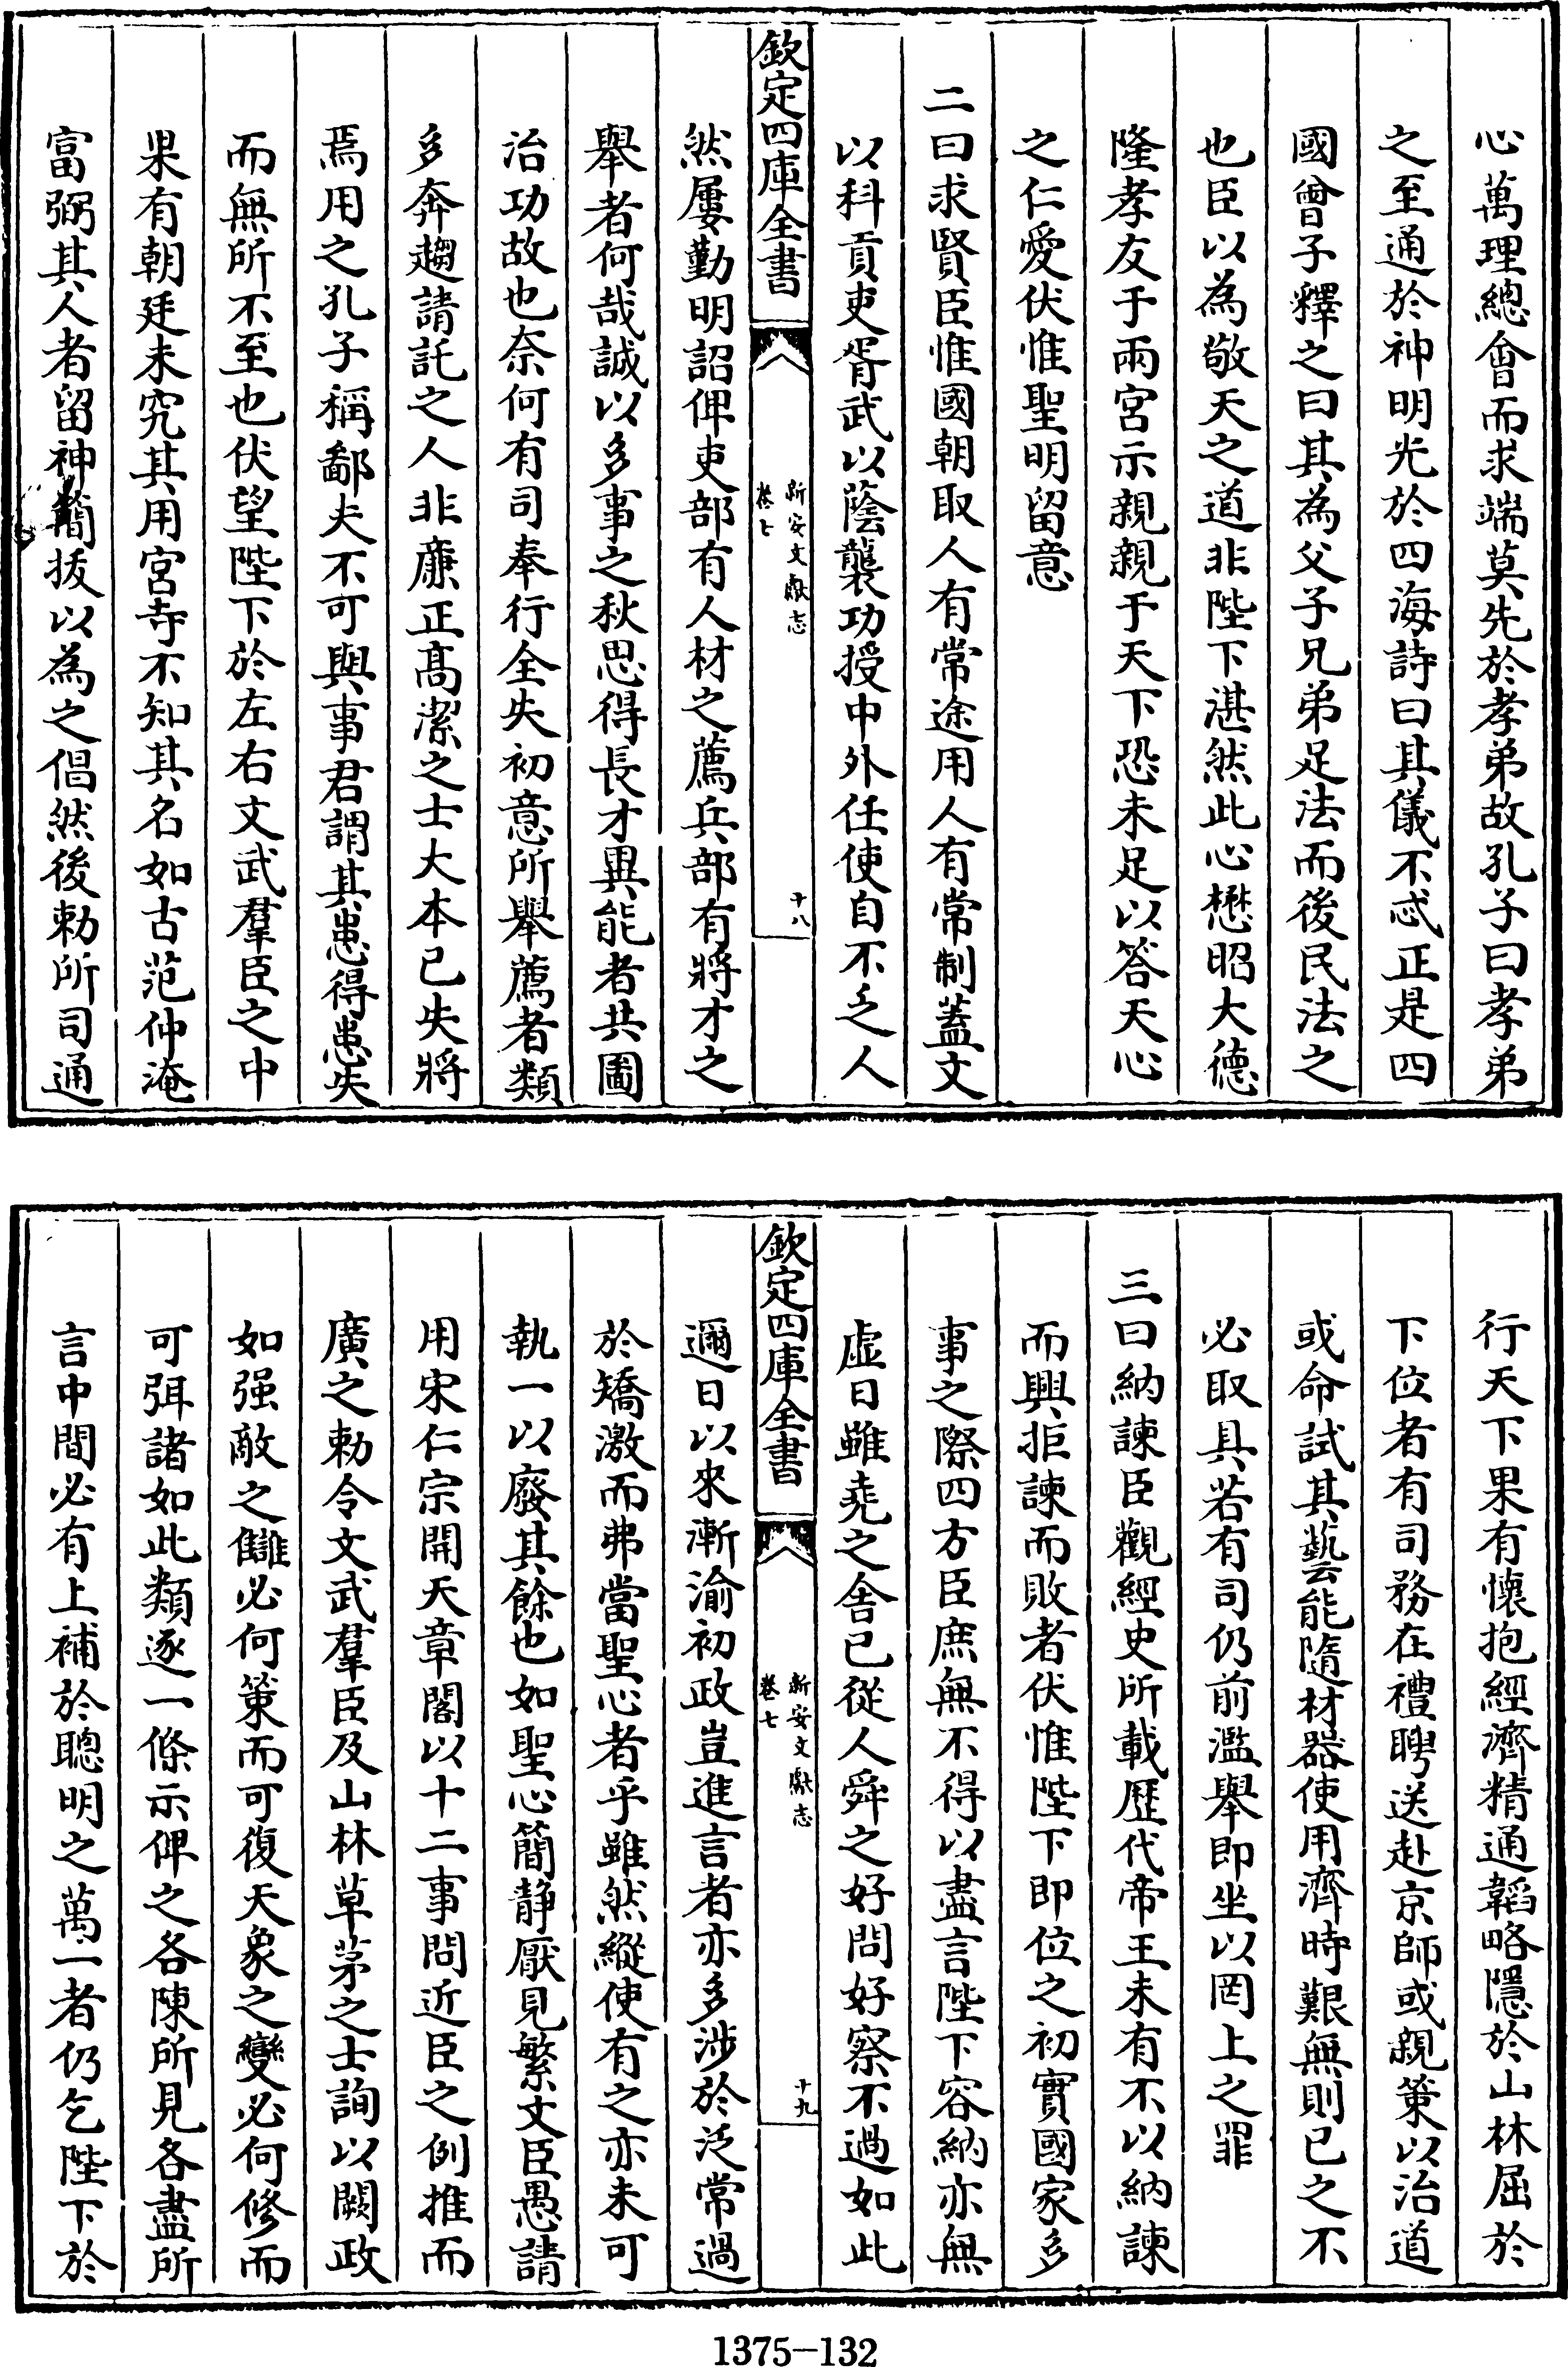 心萬理總會而求端莫先於孝弟故孔子曰孝弟
之至通於神明光於四海詩曰其儀不忒正是四
國曾子釋之曰其為父子兄弟足法而後民法之
也臣以為敬天之道非陛下湛然此心懋昭大德
隆孝友于兩宮示親親于天下恐未足以答天心
之仁愛伏惟聖明留意
二曰求賢臣惟國朝取人有常途用人有常制蓋文
以科貢吏胥武以蔭襲功授中外任使自不乏人
欽定四庫全書
新安文獻志
卷七
十八
然屢勤明詔俾吏部有人材之薦兵部有將才之
舉者何哉誠以多事之秋思得長才異能者共圖
治功故也奈何有司奉行全失初意所舉薦者類
多奔趨請託之人非廉正高潔之士大本已失將
焉用之孔子稱鄙夫不可與事君謂其患得患失
而無所不至也伏望陛下於左右文武羣臣之中
果有朝廷未究其用宮寺不知其名如古范仲淹
富弼其人者留神簡拔以為之倡然後勅所司通
行天下果有懷抱經濟精通韜略隱於山林屈於
下位者有司務在禮聘送赴京師或親策以治道
或命試其藝能隨材器使用濟時艱無則已之不
必取具若有司仍前濫舉即坐以罔上之罪
三曰納諫臣觀經史所載歷代帝王未有不以納諫
而興拒諫而敗者伏惟陛下即位之初實國家多
事之際四方臣庶無不得以盡言陛下容納亦無
虛日雖堯之舍已從人舜之好問好察不過如此
欽定四庫全書
新安文獻志
卷七
十九
邇日以來漸渝初政豈進言者亦多涉於泛常過
於矯激而弗當聖心者乎雖然縱使有之亦未可
執一以廢其餘也如聖心簡静厭見繁文臣愚請
用宋仁宗開天章閣以十二事問近臣之例推而
廣之勅令文武羣臣及山林草茅之士詢以闕政
如强敵之讎必何策而可復天象之變必何修而
可弭諸如此類逐一條示俾之各陳所見各盡所
言中間必有上補於聰明之萬一者仍乞陛下於
1375-132